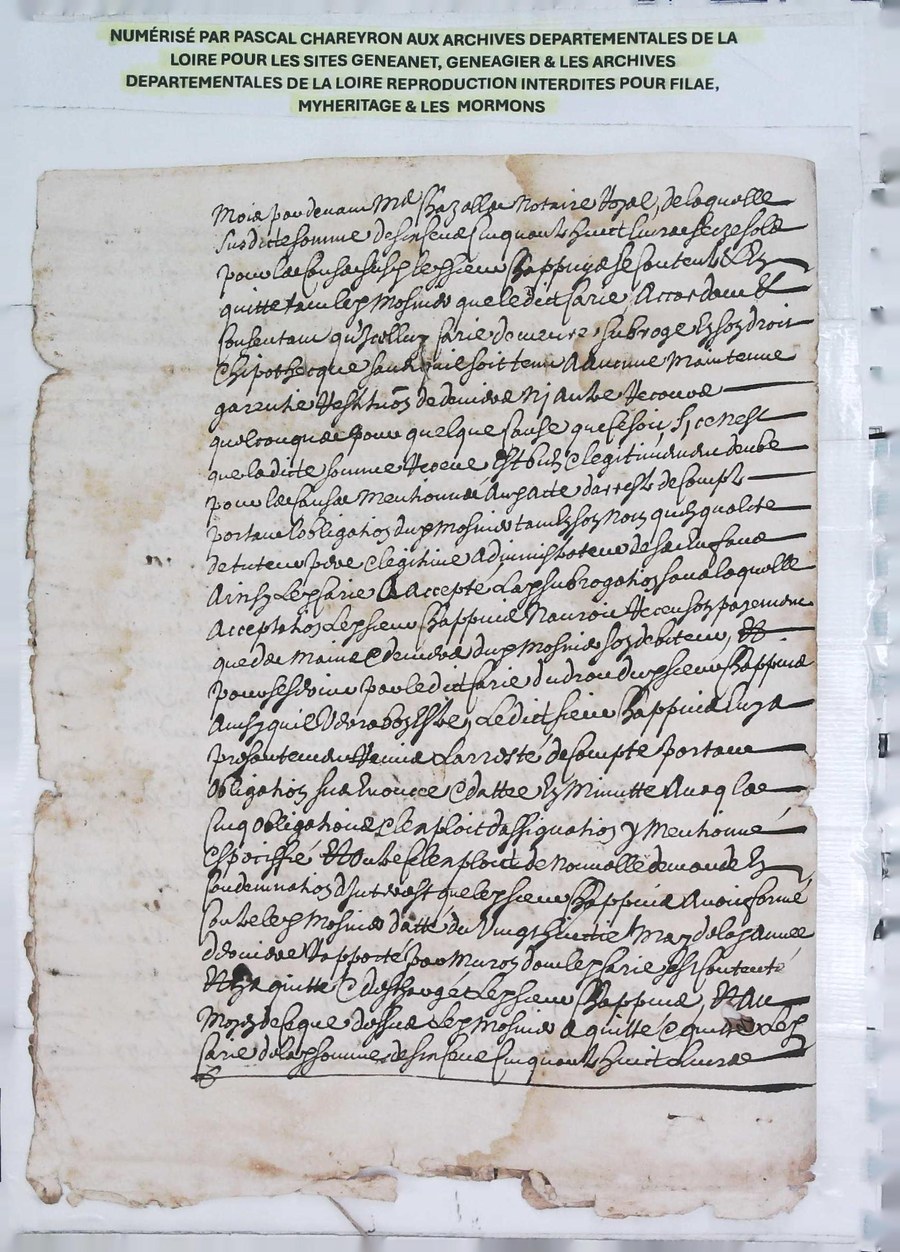 NUMÉRISÉ PAR PASCAL CHAREYRON AUX ARCHIVES DEPARTEMENTALES DE LA
LOIRE POUR LES SITES GENEANET, GENEAGIER & LES ARCHIVES
DEPARTEMENTALES DE LA LOIRE REPRODUCTION INTERDITES POUR FILAE,
MYHERITAGE & LES MORMONS
Mois pardevant Me Chazalle Notaire Royal, de laquelle
susdicte somme de six cens cinquante huict livres seize solz
pour les causes susd le sieur Chappuis se contente & En
quitte tant led Mosnier que ledict Sarie, Accordant &
Consentant qu'Icelluy Sarie demeure subrogé En son droit
& hipothecque sans qu'il soit tenu A aucune Maintenue
garentie Restitution de deniers Ny autre Recours
quelconque pour quelque cause que ce soit, Sy ce n'est
que ladicte somme Receue Est bien & legitimement deube
pour les causes Mentionnées Aud Acte d'arresté de compte
portant obligation dud Mosnier tant En son Nom qu'en qualité
de tuteur pere & legitime administrateur de ses Enfans
Ainsy Led Sarie A Accepté Lad subrogation sans laquelle
Acceptation Led sieur Chappuis N'auroit Receu son payement
que des Mains & deniers dud Mosnier son debiteur, Et
pour se servir par ledict Sarie du droit dud sieur Chappuis
Ainsy qu'il Verra bon Estre, Ledict sieur Chappuis Luy a
presentement Remis L'arresté de compte portant
obligation sus Enoncée & dattée En Minutte Avecq les
Cinq obligations & l'exploit d'assignation y Mentionné
& speciffié Et outre ce l'exploit de Nouvelle demande En
Condemnation d'Interest que led sieur Chappuis Avoit formé
Contre led Mosnier datté du Vingt huictie May de lad Année
derniere Rapporté par Muron dont led Sarie s'est contenté
Et En a quitté & deschargé Led sieur Chappuis, Et Au
Moyen de ce que dessus Led Mosnier a quitté & quitte Led
Sarie de lad somme de six cens Cinquante huict livres